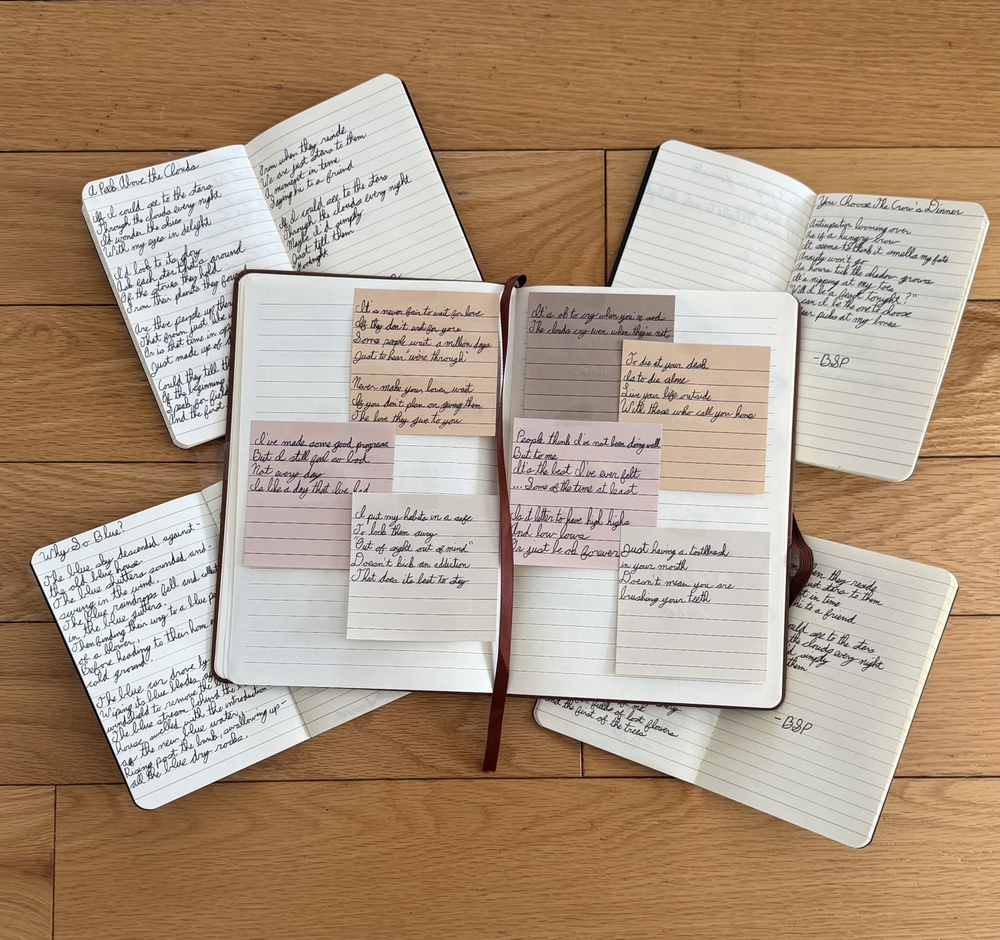 A Peek Above the Clouds
If I could see to the stars
Through the clouds every night
I'd wonder the skies
With my eyes in delight
I'd look to its glory
Ask each star that's around
Of the stories they hold
From their planets they
Are there people up there
That from just
Or is that time in
Just made up of
Could they tell
Of the beginning
I seek for fields
And the first
From when they reside
We are just stars to them
A moment in time
Saying hi to a friend
If I could see to the stars
Through the clouds every night
Maybe I'd simply
Just tell them
Goodnight
You Choose The Crow's Dinner
Anticipation looming over
As if a hungry crow
It seems to think it smells my fate
Simply won't go
As hours tick the shadow grows
It's nipping at my toes
"Will I be a feast tonight?"
can I be the one to choose
picks at my bones
-BSP
It's never fair to wait for love
If they don't wait for you
Some people wait a million days
Just to hear "we're through"
Never make your lover wait
If you don't plan on giving them
The love they give to you
It's ok to cry when you're sad
The clouds cry even when they're not
To die at your desk
Is to die alone
Live your life outside
With those who call you home
I've made some good progress
But I still feel so bad
Not every day
Is like a day that I've had
People think I've not been doing well
But to me
It's the best I've ever felt
... Some of the time at least
Is it better to have high highs
And low lows
Or just be ok forever
I put my habits in a safe
To lock them away
"Out of sight out of mind"
Doesn't kick an addiction
That does its best to stay
Just having a toothbrush
in your mouth
Doesn't mean you are
brushing your teeth
Why So Blue?
The blue sky descended against-
the old blue house
The blue shutters sounded and-
swung in the wind.
The blue raindrops fell and
in the blue gutters.
Then finding their way to a blue
of a flower,
Before heading to their home
cold ground.
The blue car drove by
Wiping its blue blades
windshield to remove the
The blue stream behind the
house swelled with the introduction
of the new blue water,
Rising past the bank swallowing up-
all the blue dry rocks.
when they reside
just stars to them
in time
hi to a friend
could see to the stars
the clouds every night
simply
them
-BSP
for fields of lost flowers
And the first of the trees